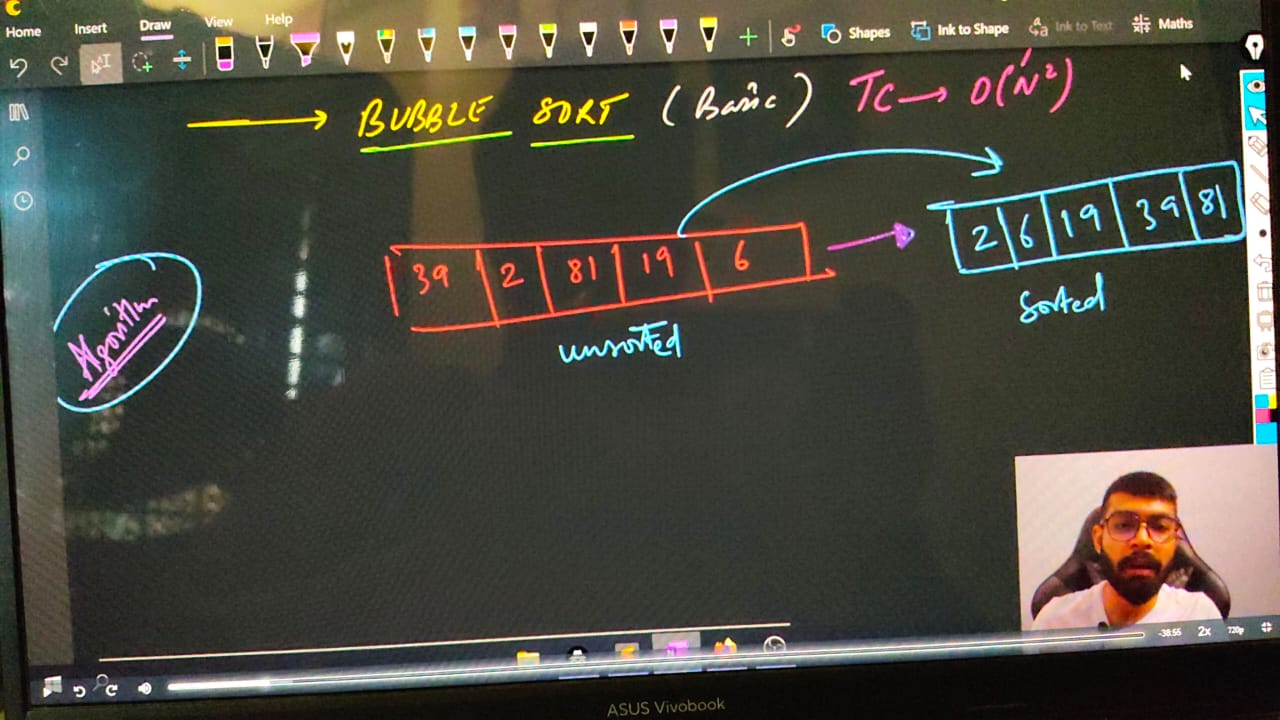 Home Insert Draw View Help
Shapes Ink to Shape Ink to Text Maths
BUBBLE SORT (Basic) TC → O(N²)
39 2 81 19 6
2 6 19 39 81
unsorted
sorted
Algorithm
-38:55 2x 720p
ASUS Vivobook